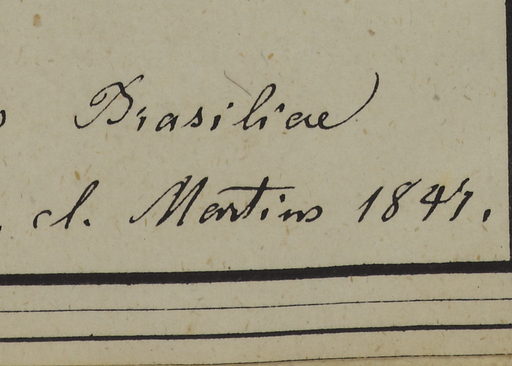 Brasiliae)
cl. Martius 1847.